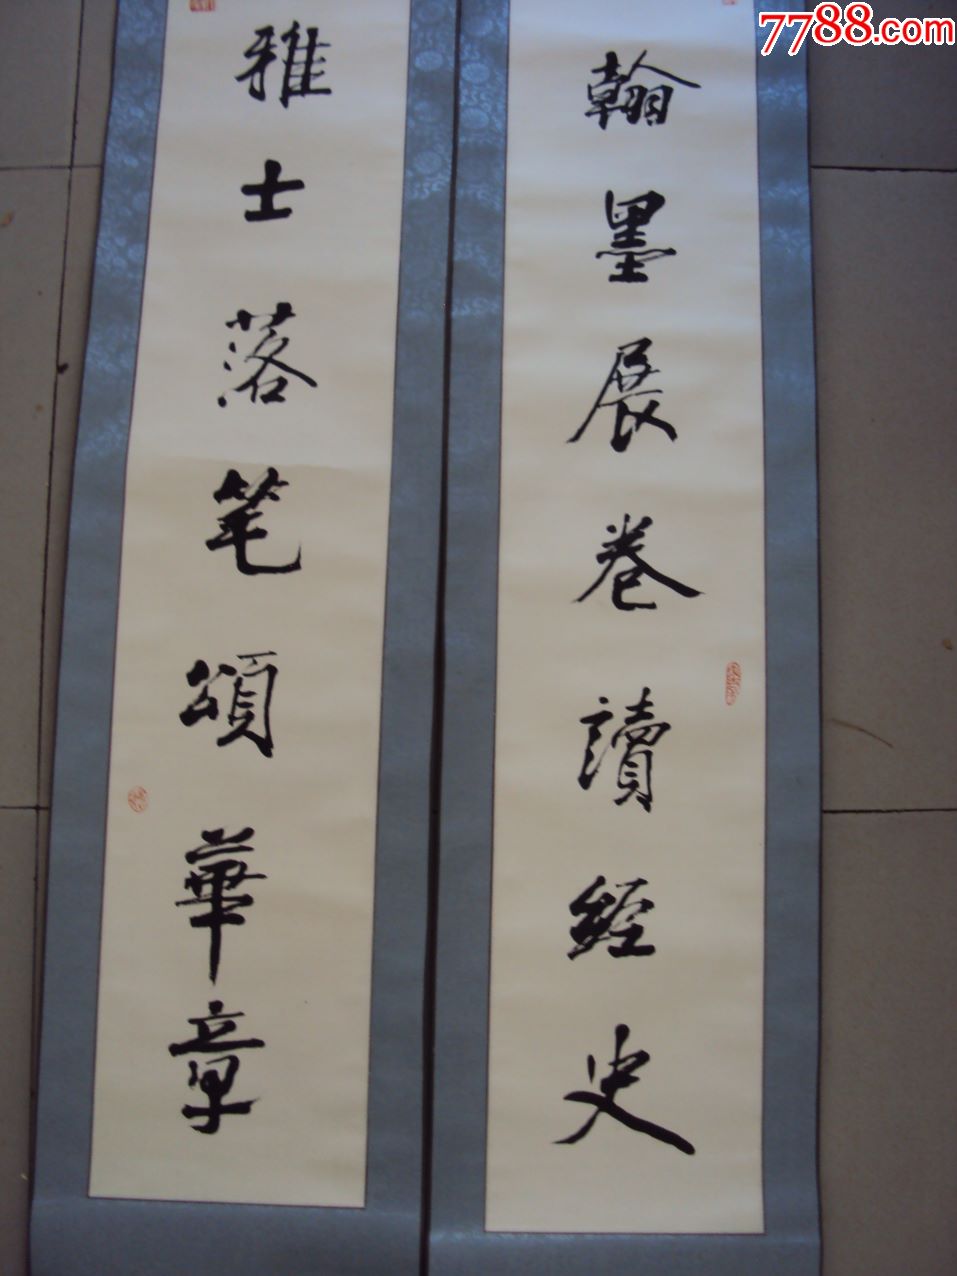 7788.com
翰墨展卷讀經史
雅士落笔頌華章